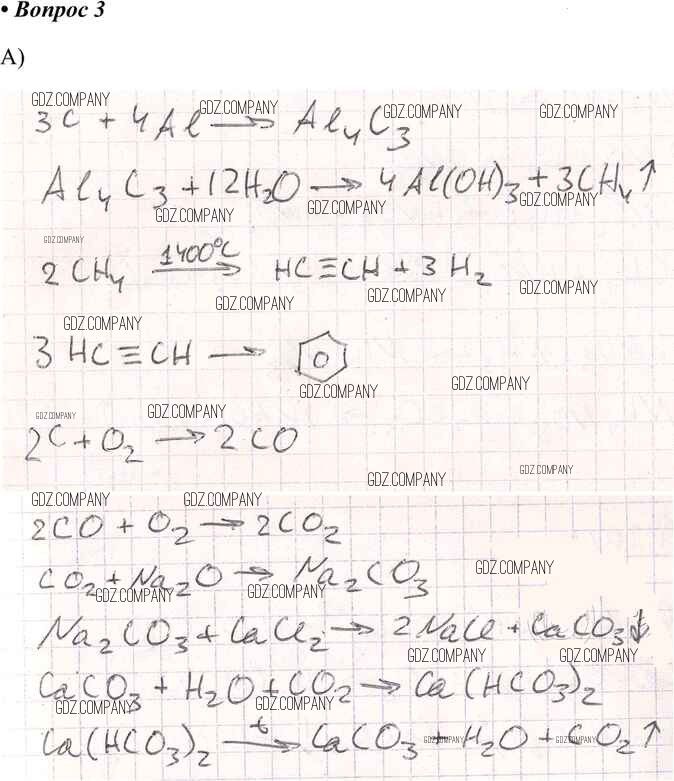 • Вопрос 3
А)
GDZ.COMPANY GDZ.COMPANY GDZ.COMPANY GDZ.COMPANY
3C + 4Al → Al₄C₃
Al₄C₃ + 12H₂O → 4Al(OH)₃ + 3CH₄↑
GDZ.COMPANY GDZ.COMPANY GDZ.COMPANY
GDZ.COMPANY
2CH₄ 1400°C → HC≡CH + 3H₂
GDZ.COMPANY GDZ.COMPANY GDZ.COMPANY
GDZ.COMPANY
3HC≡CH →
GDZ.COMPANY GDZ.COMPANY
GDZ.COMPANY GDZ.COMPANY
2C + O₂ → 2CO
GDZ.COMPANY GDZ.COMPANY
GDZ.COMPANY GDZ.COMPANY
2CO + O₂ → 2CO₂
CO₂ + Na₂O → Na₂CO₃ GDZ.COMPANY
GDZ.COMPANY GDZ.COMPANY
Na₂CO₃ + CaCl₂ → 2NaCl + CaCO₃↓
GDZ.COMPANY GDZ.COMPANY
CaCO₃ + H₂O + CO₂ → Ca(HCO₃)₂
GDZ.COMPANY GDZ.COMPANY
Ca(HCO₃)₂ t → CaCO₃ + H₂O + CO₂↑
GDZ.COMPANY GDZ.COMPANY